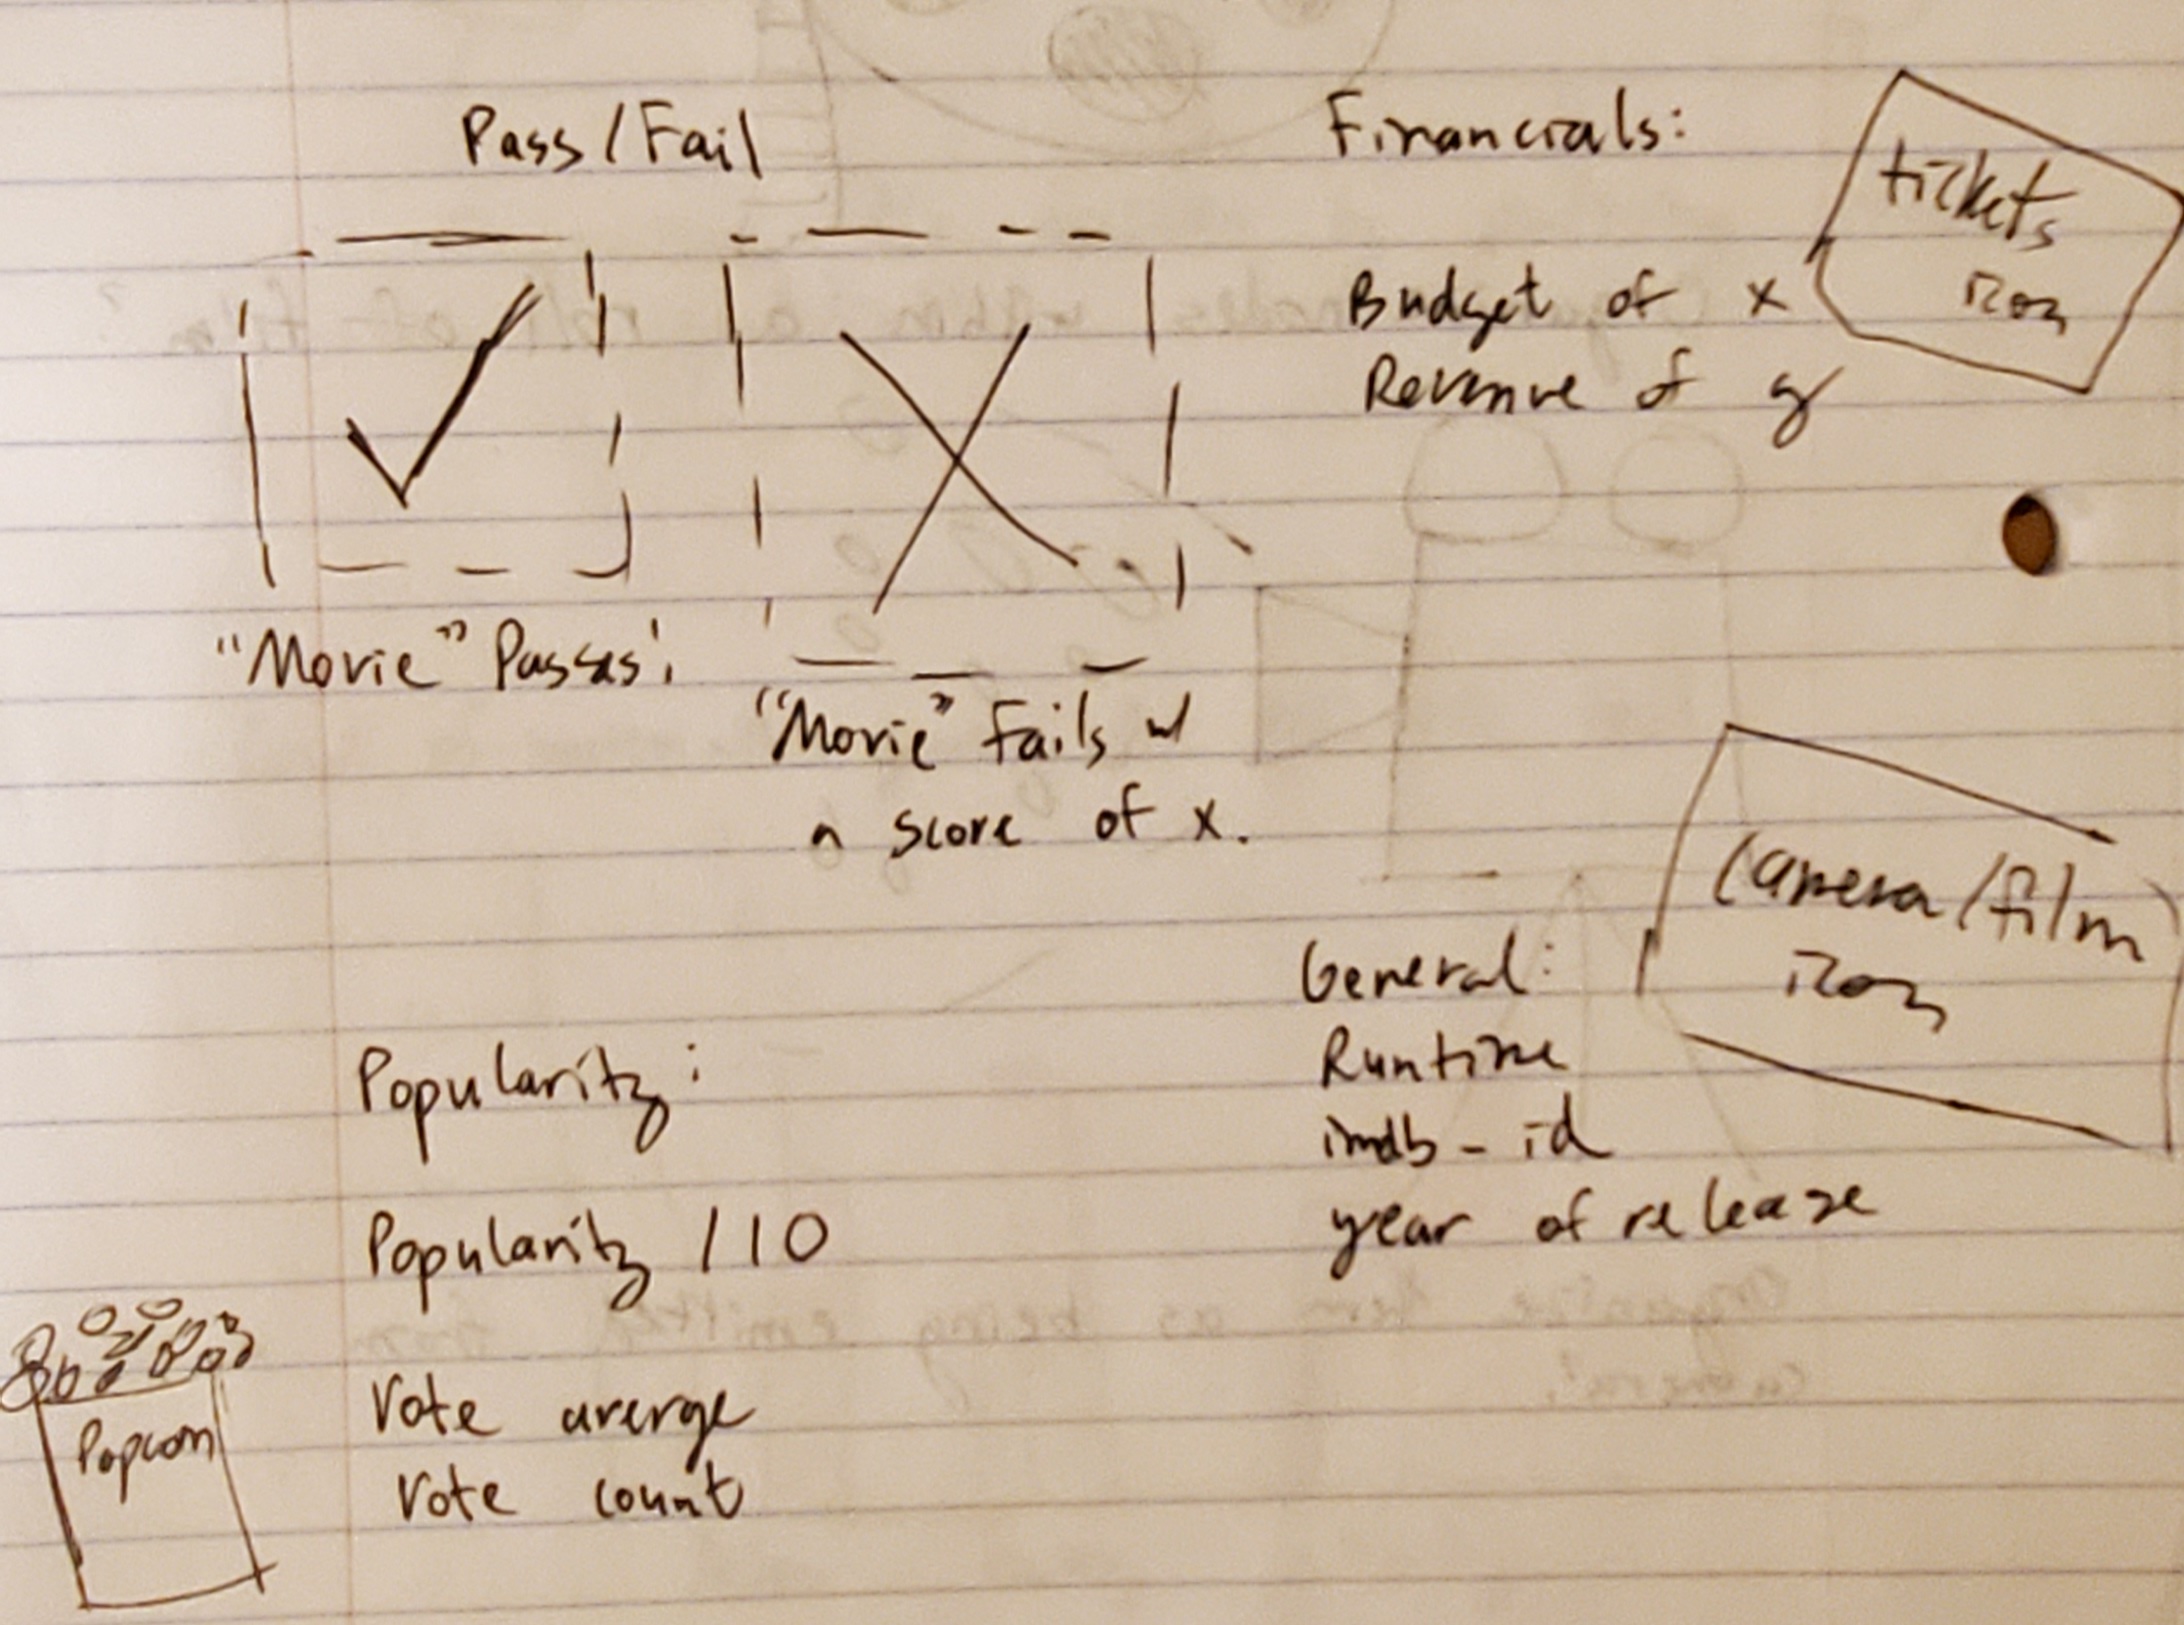 Pass/Fail
"Movie" Passes!
"Movie" Fails w/
a score of x.
Financials:
tickets
icon
Budget of x
Revenue of y
Camera/film
icon
General:
Runtime
imdb-id
year of release
Popularity:
Popularity /10
Vote averge
Vote count
Popcorn